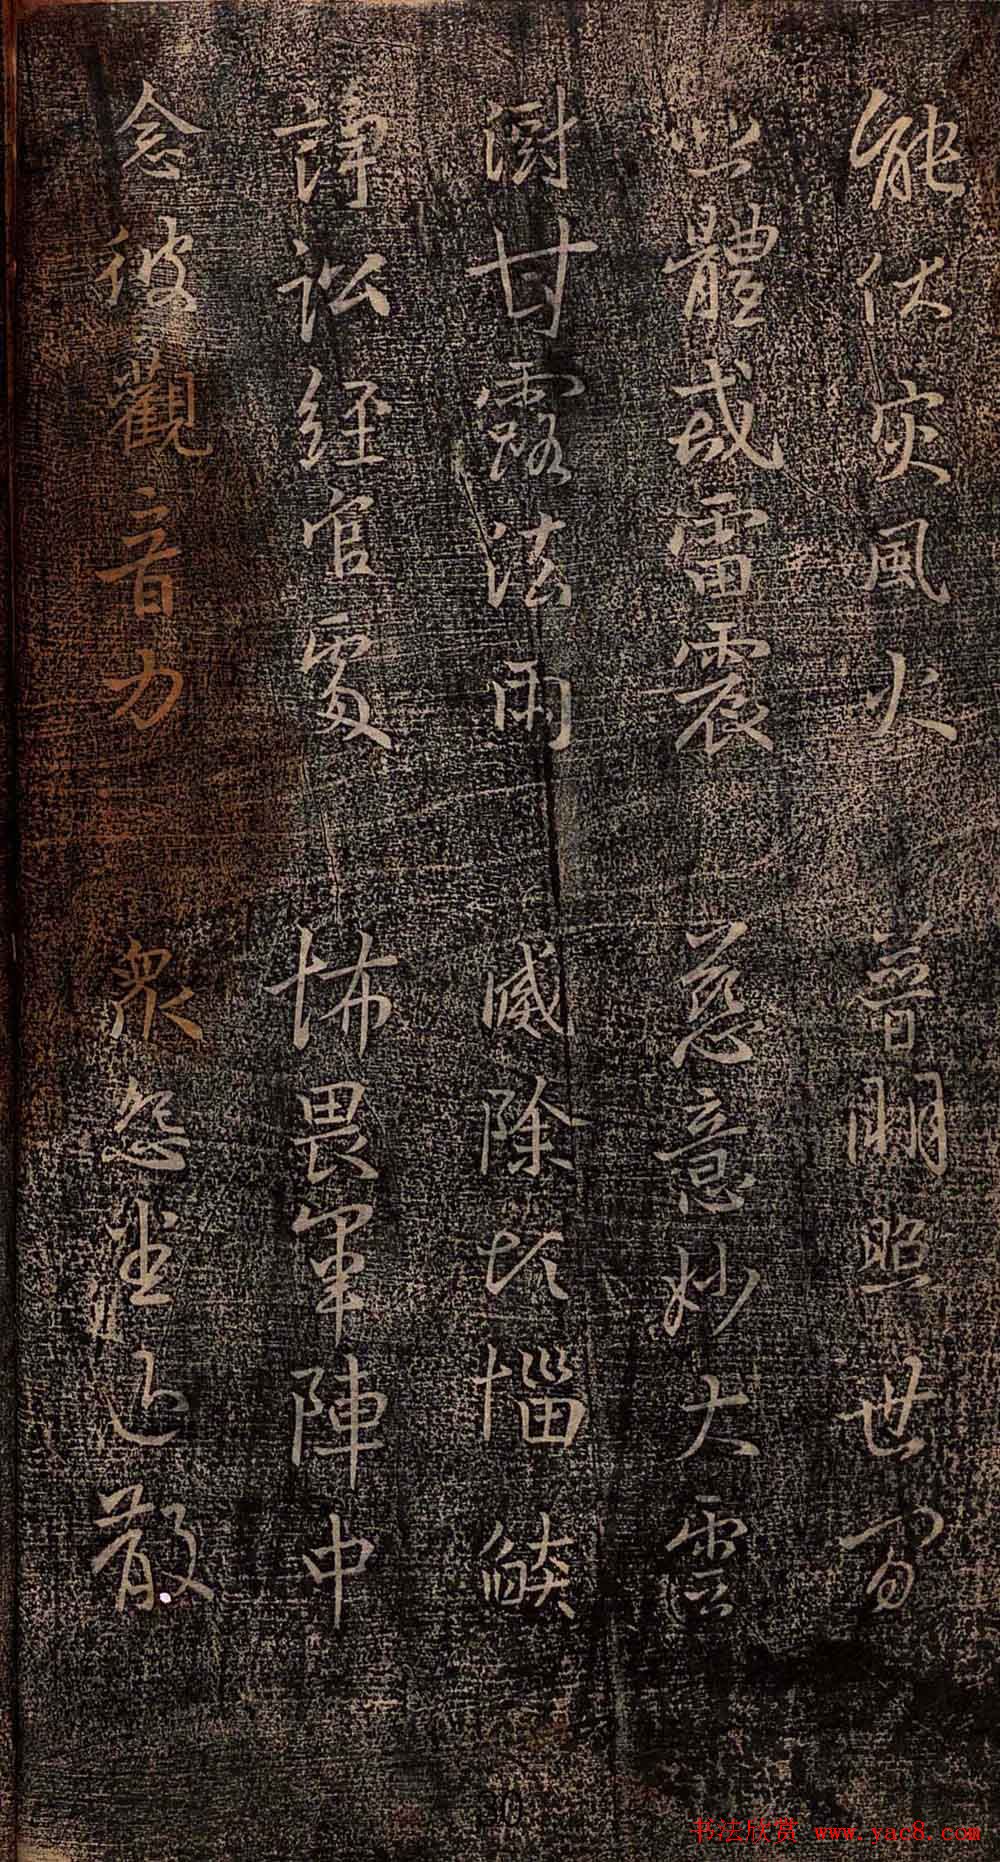 能伏灾風火 普明照世間
悲體戒雷震 慈意妙大雲
澍甘露法雨 滅除煩惱燄
諍訟經官處 怖畏軍陣中
念彼觀音力 眾怨悉退散
书法欣赏 www.yac8.com